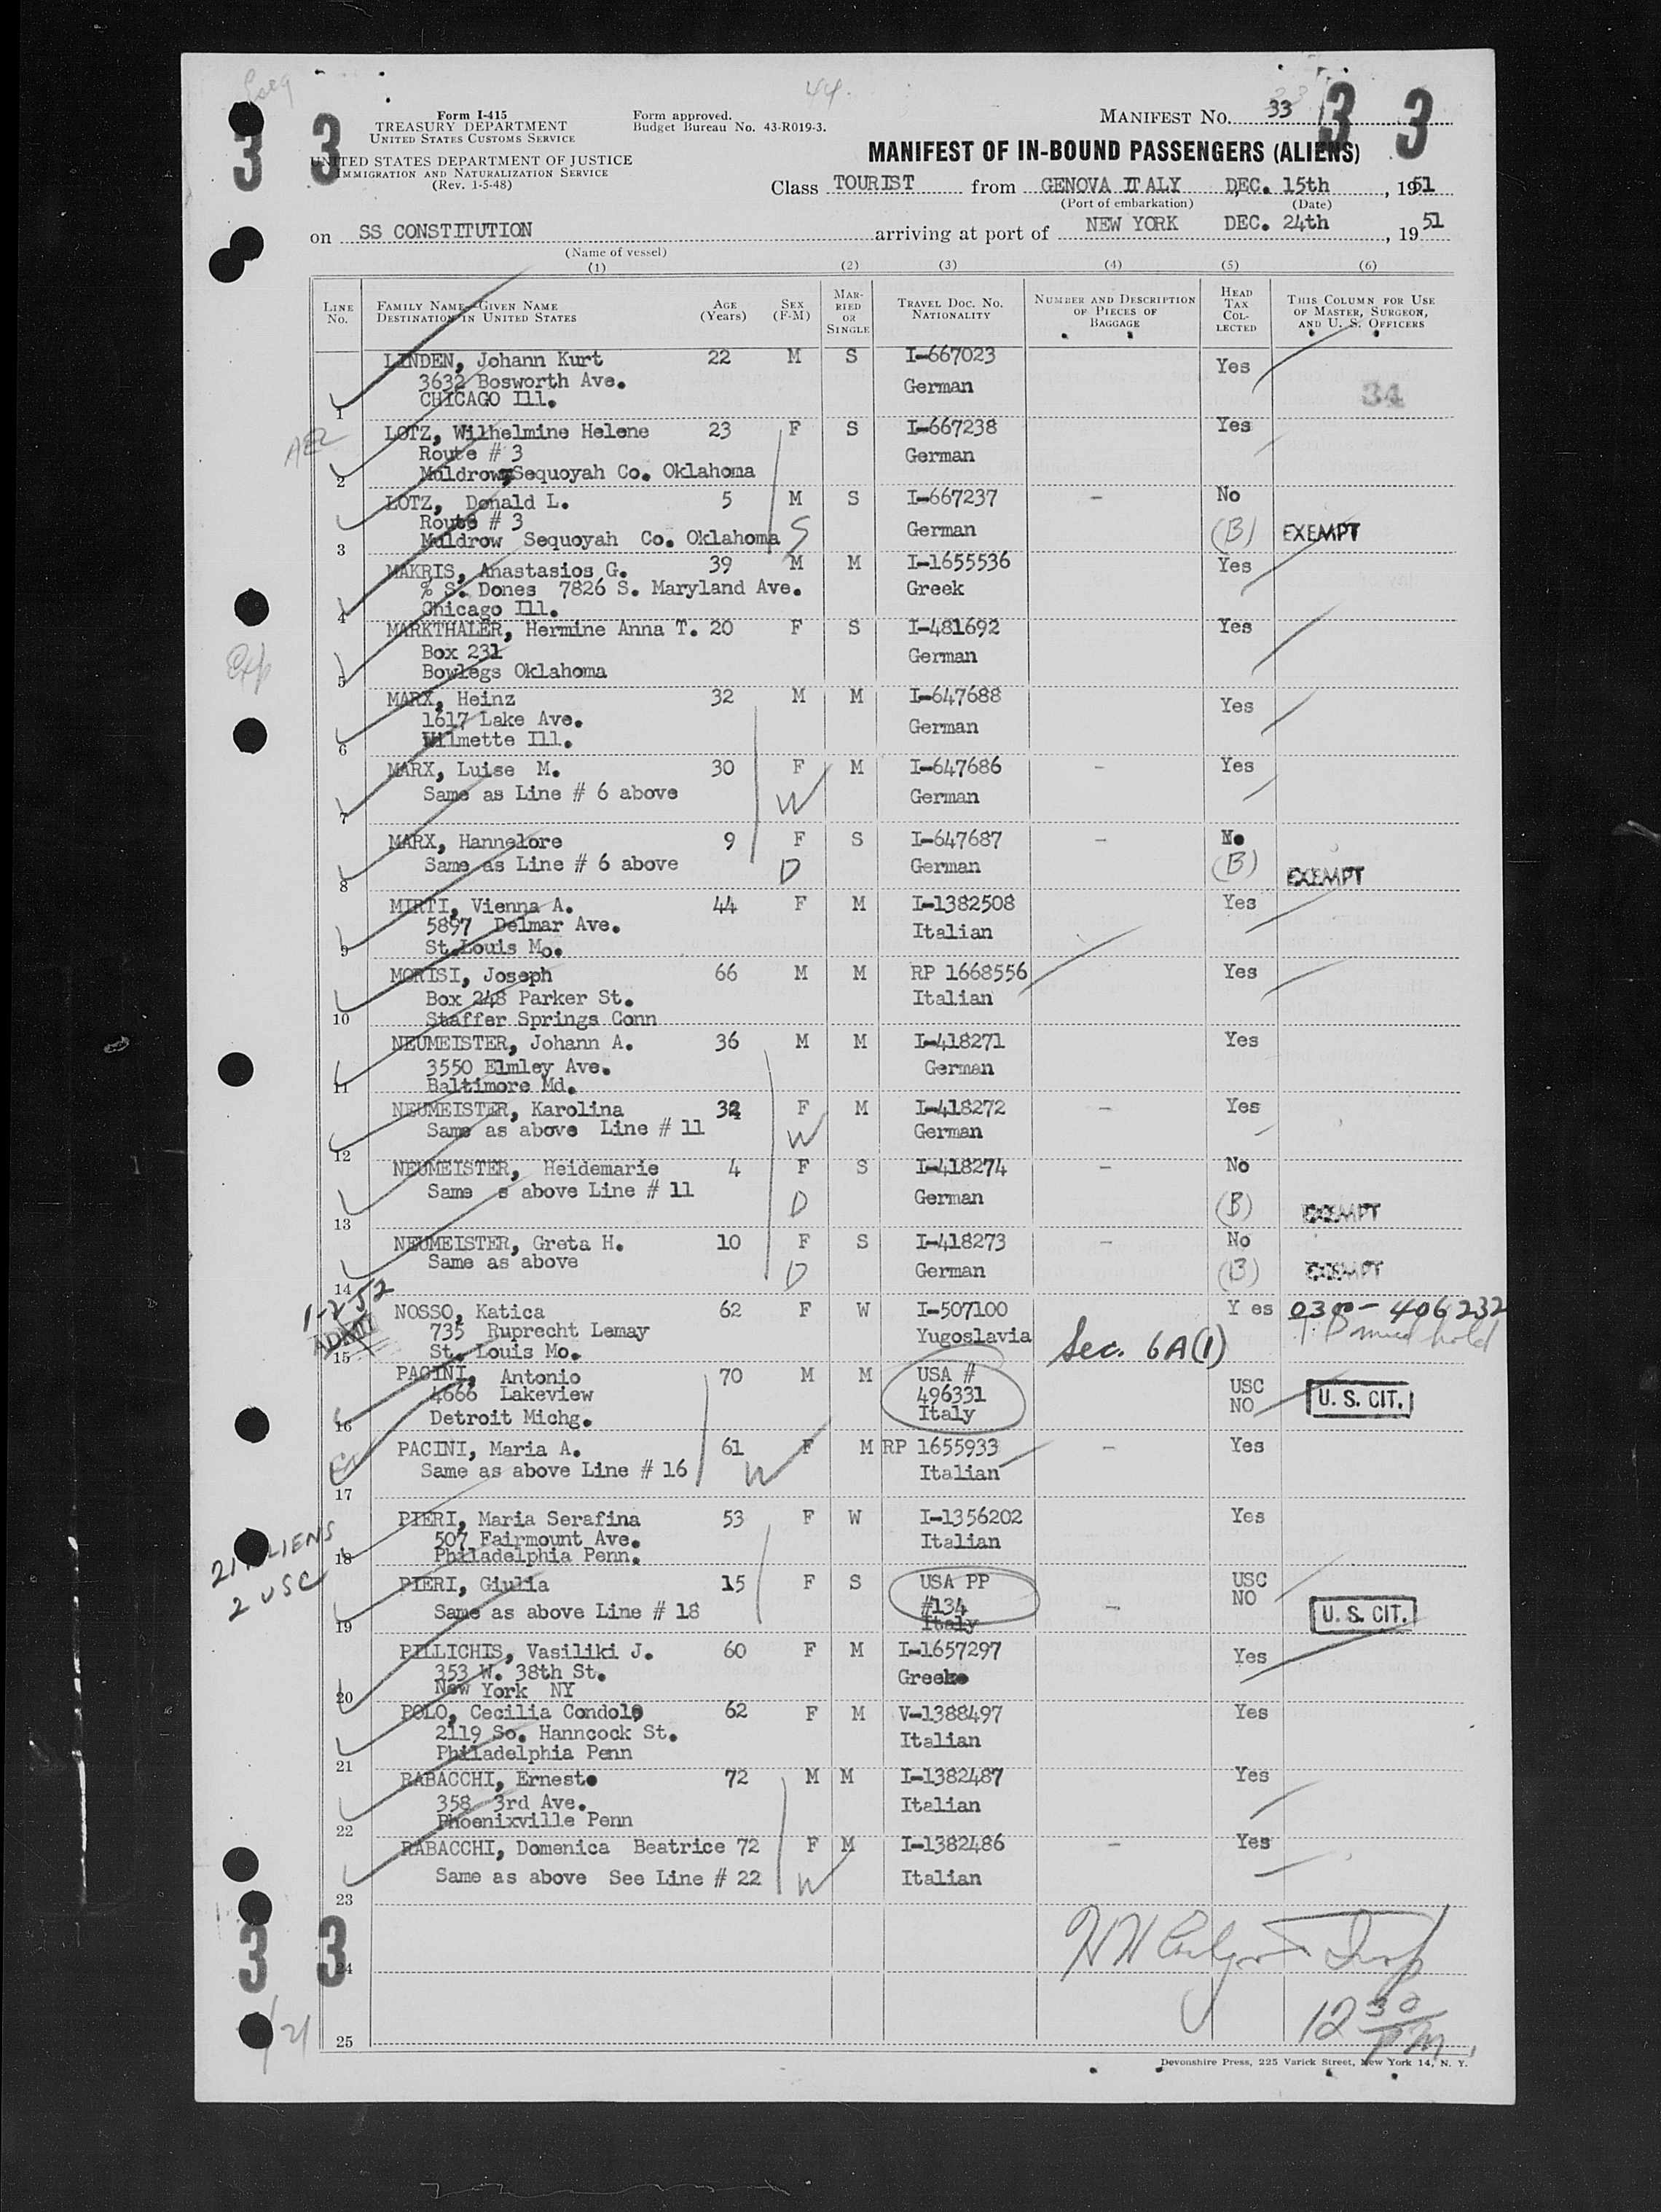 44.
Form I-415
TREASURY DEPARTMENT
UNITED STATES CUSTOMS SERVICE
UNITED STATES DEPARTMENT OF JUSTICE
IMMIGRATION AND NATURALIZATION SERVICE
(Rev. 1-5-48)
Form approved.
Budget Bureau No. 43-R019-3.
MANIFEST NO. 33
3 3 3 3
MANIFEST OF IN-BOUND PASSENGERS (ALIENS)
Class TOURIST from GENOVA ITALY DEC. 15th, 1951
(Port of embarkation) (Date)
on SS CONSTITUTION arriving at port of NEW YORK DEC. 24th, 1951
(Name of vessel)
(1) (2) (3) (4) (5) (6)
LINE NO. FAMILY NAME—GIVEN NAME DESTINATION IN UNITED STATES AGE (YEARS) SEX (F-M) MARRIED OR SINGLE TRAVEL DOC. NO. NATIONALITY NUMBER AND DESCRIPTION OF PIECES OF BAGGAGE HEAD TAX COLLECTED THIS COLUMN FOR USE OF MASTER, SURGEON, AND U. S. OFFICERS
LINDEN, Johann Kurt 22 M S I-667023 Yes
3632 Bosworth Ave. German
1 CHICAGO Ill. 34
LOTZ, Wilhelmine Helene 23 F S I-667238 Yes
Route # 3 German
2 Muldrow, Sequoyah Co. Oklahoma
LOTZ, Donald L. 5 M S I-667237 - No
Route # 3 German (B) EXEMPT
3 Muldrow Sequoyah Co. Oklahoma S
MAKRIS, Anastasios G. 39 M M I-1655536 Yes
% S. Dones 7826 S. Maryland Ave. Greek
4 Chicago Ill.
MARKTHALER, Hermine Anna T. 20 F S I-481692 Yes
Box 231 German
5 Bowlegs Oklahoma
MARX, Heinz 32 M M I-647688 Yes
1617 Lake Ave. German
6 Wilmette Ill.
MARX, Luise M. 30 F M I-647686 - Yes
Same as Line # 6 above W German
7
MARX, Hannelore 9 F S I-647687 - No
Same as Line # 6 above D German (B) EXEMPT
8
MIRTI, Vienna A. 44 F M I-1382508 Yes
5897 Delmar Ave. Italian
9 St.Louis Mo.
MORISI, Joseph 66 M M RP 1668556 Yes
Box 248 Parker St. Italian
10 Staffer Springs Conn
NEUMEISTER, Johann A. 36 M M I-418271 Yes
3550 Elmley Ave. German
11 Baltimore Md.
NEUMEISTER, Karolina F M I-418272 - Yes
Same as above Line # 11 W German
12
NEUMEISTER, Heidemarie 4 F S I-418274 - No
Same s above Line # 11 D German (B) EXEMPT
13
NEUMEISTER, Greta H. 10 F S I-418273 - No
Same as above D German (B) EXEMPT
14
1-2-52
NOSSO, Katica 62 F W I-507100 Y es 0300-406232
ADMIT 735 Ruprecht Lemay Yugoslavia Sec. 6A(1) hold
15 St. Louis Mo.
PACINI, Antonio 70 M M USA # USC
4666 Lakeview 496331 NO U. S. CIT.
16 Detroit Michg. Italy
PACINI, Maria A. 61 F M RP 1655933 - Yes
Same as above Line # 16 W Italian
17
PIERI, Maria Serafina 53 F W I-1356202 Yes
507 Fairmount Ave. Italian
18 Philadelphia Penn.
21 ALIENS
2 USC
PIERI, Giulia 15 F S USA PP USC
Same as above Line # 18 #134 - NO U. S. CIT.
19 Italy
PILLICHIS, Vasiliki J. 60 F M I-1657297 Yes
353 W. 38th St. Greek
20 New York NY
POLO, Cecilia Condolo 62 F M V-1388497 Yes
2119 So. Hanncock St. Italian
21 Philadelphia Penn
RABACCHI, Ernesto 72 M M I-1382487 Yes
358 3rd Ave. Italian
22 Phoenixville Penn
RABACCHI, Domenica Beatrice 72 F M I-1382486 - Yes
Same as above See Line # 22 W Italian
23
3 3
24
12 30 PM
25
Devonshire Press, 225 Varick Street, New York 14, N. Y.